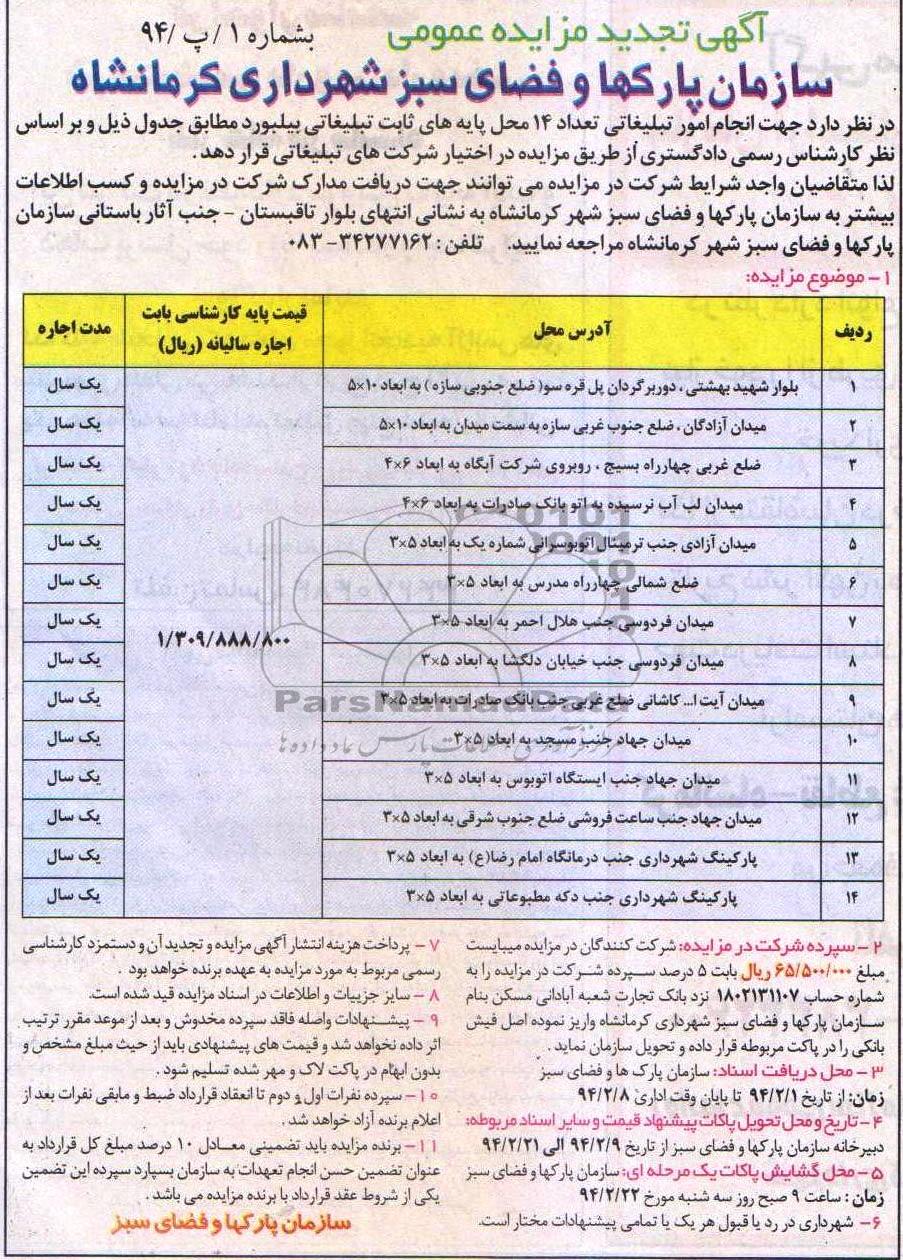 آگهی تجدید مزایده عمومی بشماره ۱/ پ /۹۴
سازمان پارکها و فضای سبز شهرداری کرمانشاه
در نظر دارد جهت انجام امور تبلیغاتی تعداد ۱۴ محل پایه های ثابت تبلیغاتی بیلبورد مطابق جدول ذیل و بر اساس
نظر کارشناس رسمی دادگستری از طریق مزایده در اختیار شرکت های تبلیغاتی قرار دهد.
لذا متقاضیان واجد شرایط شرکت در مزایده می توانند جهت دریافت مدارک شرکت در مزایده و کسب اطلاعات
بیشتر به سازمان پارکها و فضای سبز شهر کرمانشاه به نشانی انتهای بلوار تاقبستان - جنب آثار باستانی سازمان
پارکها و فضای سبز شهر کرمانشاه مراجعه نمایید. تلفن: ۳۴۲۷۷۱۶۲-۰۸۳
۱- موضوع مزایده:
ردیف آدرس محل قیمت پایه کارشناسی بابت اجاره سالیانه (ریال) مدت اجاره
۱ بلوار شهید بهشتی، دوربرگردان پل قره سو( ضلع جنوبی سازه ) به ابعاد ۱۰×۵ یک سال
۲ میدان آزادگان، ضلع جنوب غربی سازه به سمت میدان به ابعاد ۱۰×۵ یک سال
۳ ضلع غربی چهارراه بسیج، روبروی شرکت آبگاه به ابعاد ۶×۴ یک سال
۴ میدان لب آب نرسیده به اتو بانک صادرات به ابعاد ۶×۴ یک سال
۵ میدان آزادی جنب ترمینال اتوبوسرانی شماره یک به ابعاد ۵×۳ یک سال
۶ ضلع شمالی چهارراه مدرس به ابعاد ۵×۳ یک سال
۷ میدان فردوسی جنب هلال احمر به ابعاد ۵×۳ ۱/۳۰۹/۸۸۸/۸۰۰ یک سال
۸ میدان فردوسی جنب خیابان دلگشا به ابعاد ۵×۳ یک سال
۹ میدان آیت ا... کاشانی ضلع غربی جنب بانک صادرات به ابعاد ۵×۳ یک سال
۱۰ میدان جهاد جنب مسجد به ابعاد ۵×۳ یک سال
۱۱ میدان جهاد جنب ایستگاه اتوبوس به ابعاد ۵×۳ یک سال
۱۲ میدان جهاد جنب ساعت فروشی ضلع جنوب شرقی به ابعاد ۵×۳ یک سال
۱۳ پارکینگ شهرداری جنب درمانگاه امام رضا(ع) به ابعاد ۵×۳ یک سال
۱۴ پارکینگ شهرداری جنب دکه مطبوعاتی به ابعاد ۵×۳ یک سال
ParsNamadData
۲- سپرده شرکت در مزایده: شرکت کنندگان در مزایده میبایست
مبلغ ۶۵/۵۰۰/۰۰۰ ریال بابت ۵ درصد سپرده شرکت در مزایده را به
شماره حساب ۱۸۰۲۱۳۱۱۰۷ نزد بانک تجارت شعبه آبادانی مسکن بنام
سازمان پارکها و فضای سبز شهرداری کرمانشاه واریز نموده اصل فیش
بانکی را در پاکت مربوطه قرار داده و تحویل سازمان نماید.
۳- محل دریافت اسناد: سازمان پارک ها و فضای سبز
زمان: از تاریخ ۹۴/۲/۱ تا پایان وقت اداری ۹۴/۲/۸
۴- تاریخ و محل تحویل پاکات پیشنهاد قیمت و سایر اسناد مربوطه:
دبیرخانه سازمان پارکها و فضای سبز از تاریخ ۹۴/۲/۹ الی ۹۴/۲/۲۱
۵- محل گشایش پاکات یک مرحله ای: سازمان پارکها و فضای سبز
زمان: ساعت ۹ صبح روز سه شنبه مورخ ۹۴/۲/۲۲
۶- شهرداری در رد یا قبول هر یک یا تمامی پیشنهادات مختار است.
۷- پرداخت هزینه انتشار آگهی مزایده و تجدید آن و دستمزد کارشناسی
رسمی مربوط به مورد مزایده به عهده برنده خواهد بود.
۸- سایر جزییات و اطلاعات در اسناد مزایده قید شده است.
۹- پیشنهادات واصله فاقد سپرده مخدوش و بعد از موعد مقرر ترتیب
اثر داده نخواهد شد و قیمت های پیشنهادی باید از حیث مبلغ مشخص و
بدون ابهام در پاکت لاک و مهر شده تسلیم شود.
۱۰- سپرده نفرات اول و دوم تا انعقاد قرارداد ضبط و مابقی نفرات بعد از
اعلام برنده آزاد خواهد شد.
۱۱- برنده مزایده باید تضمینی معادل ۱۰ درصد مبلغ کل قرارداد به
عنوان تضمین حسن انجام تعهدات به سازمان بسپارد سپرده این تضمین
یکی از شروط عقد قرارداد با برنده مزایده می باشد.
سازمان پارکها و فضای سبز